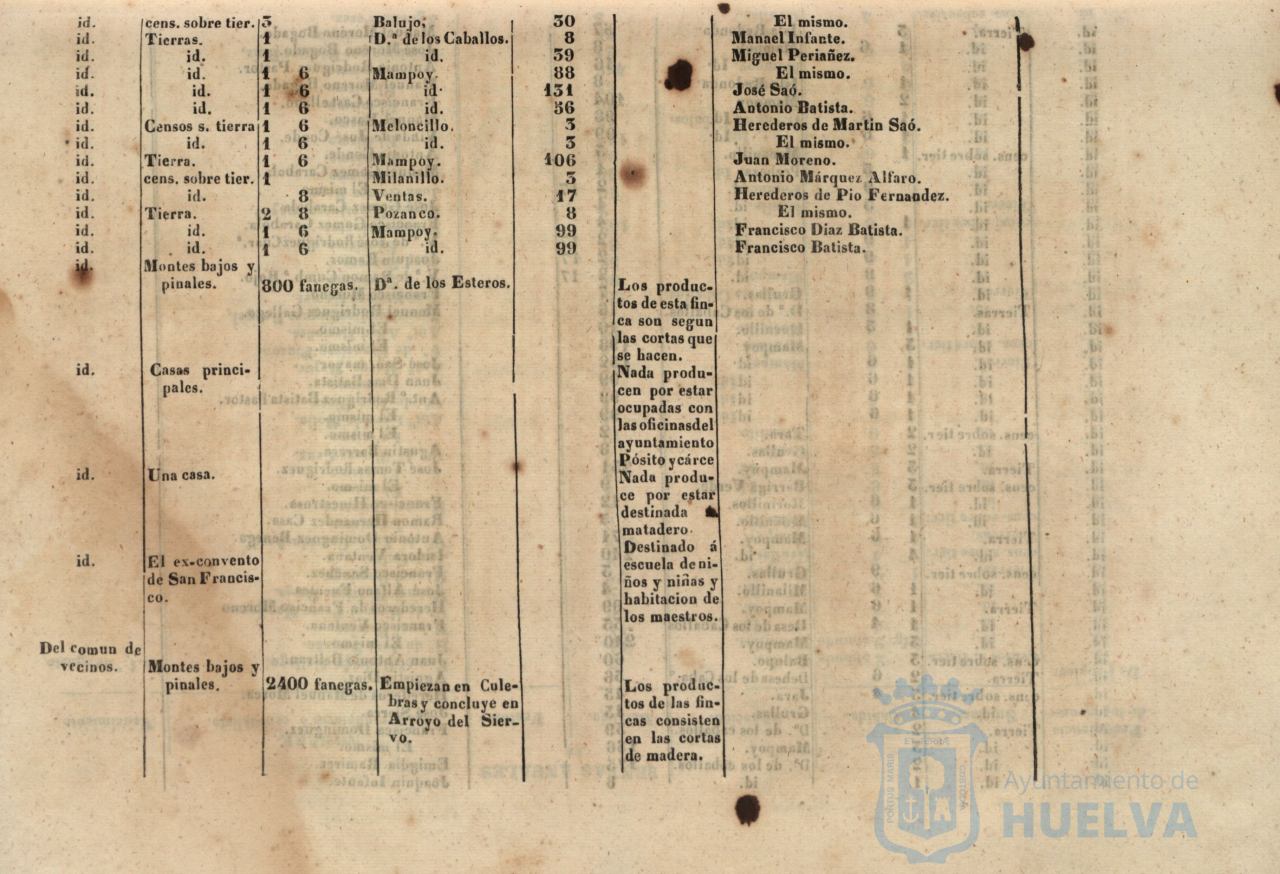 id. cens. sobre tier. 3 Balujo, 30 El mismo.
id. Tierras. 1 D.ª de los Caballos. 8 Manael Infante.
id. id. 1 id. 39 Miguel Periañez.
id. id. 1 6 Mampoy. 88 El mismo.
id. id. 1 6 id. 131 José Saó.
id. id. 1 6 id. 56 Antonio Batista.
id. Censos s. tierra 1 6 Meloncillo. 3 Herederos de Martin Saó.
id. id. 1 6 id. 3 El mismo.
id. Tierra. 1 6 Mampoy. 106 Juan Moreno.
id. cens. sobre tier. 1 Milanillo. 3 Antonio Márquez Alfaro.
id. id. 8 Ventas. 17 Herederos de Pio Fernandez.
id. Tierra. 2 8 Pozanco. 8 El mismo.
id. id. 1 6 Mampoy. 99 Francisco Diaz Batista.
id. id. 1 6 id. 99 Francisco Batista.
id. Montes bajos y
pinales. 800 fanegas. Dª. de los Esteros. Los produc-
tos de esta fin-
ca son segun
las cortas que
se hacen.
id. Casas princi- Nada produ-
pales. cen por estar
ocupadas con
las oficinas del
ayuntamiento
Pósito y cárce
id. Una casa. Nada produ-
ce por estar
destinada
matadero
Destinado á
id. El ex-convento escuela de ni-
de San Francis- ños y niñas y
co. habitacion de
los maestros.
Del comun de
vecinos. Montes bajos y
pinales. 2400 fanegas. Empiezan en Cule- Los produc-
bras y concluye en tos de las fin-
Arroyo del Sier- cas consisten
vo. en las cortas
de madera.
PORTUS MARIS
ET TERRÆ
CUSTODIA
Ayuntamiento de
HUELVA